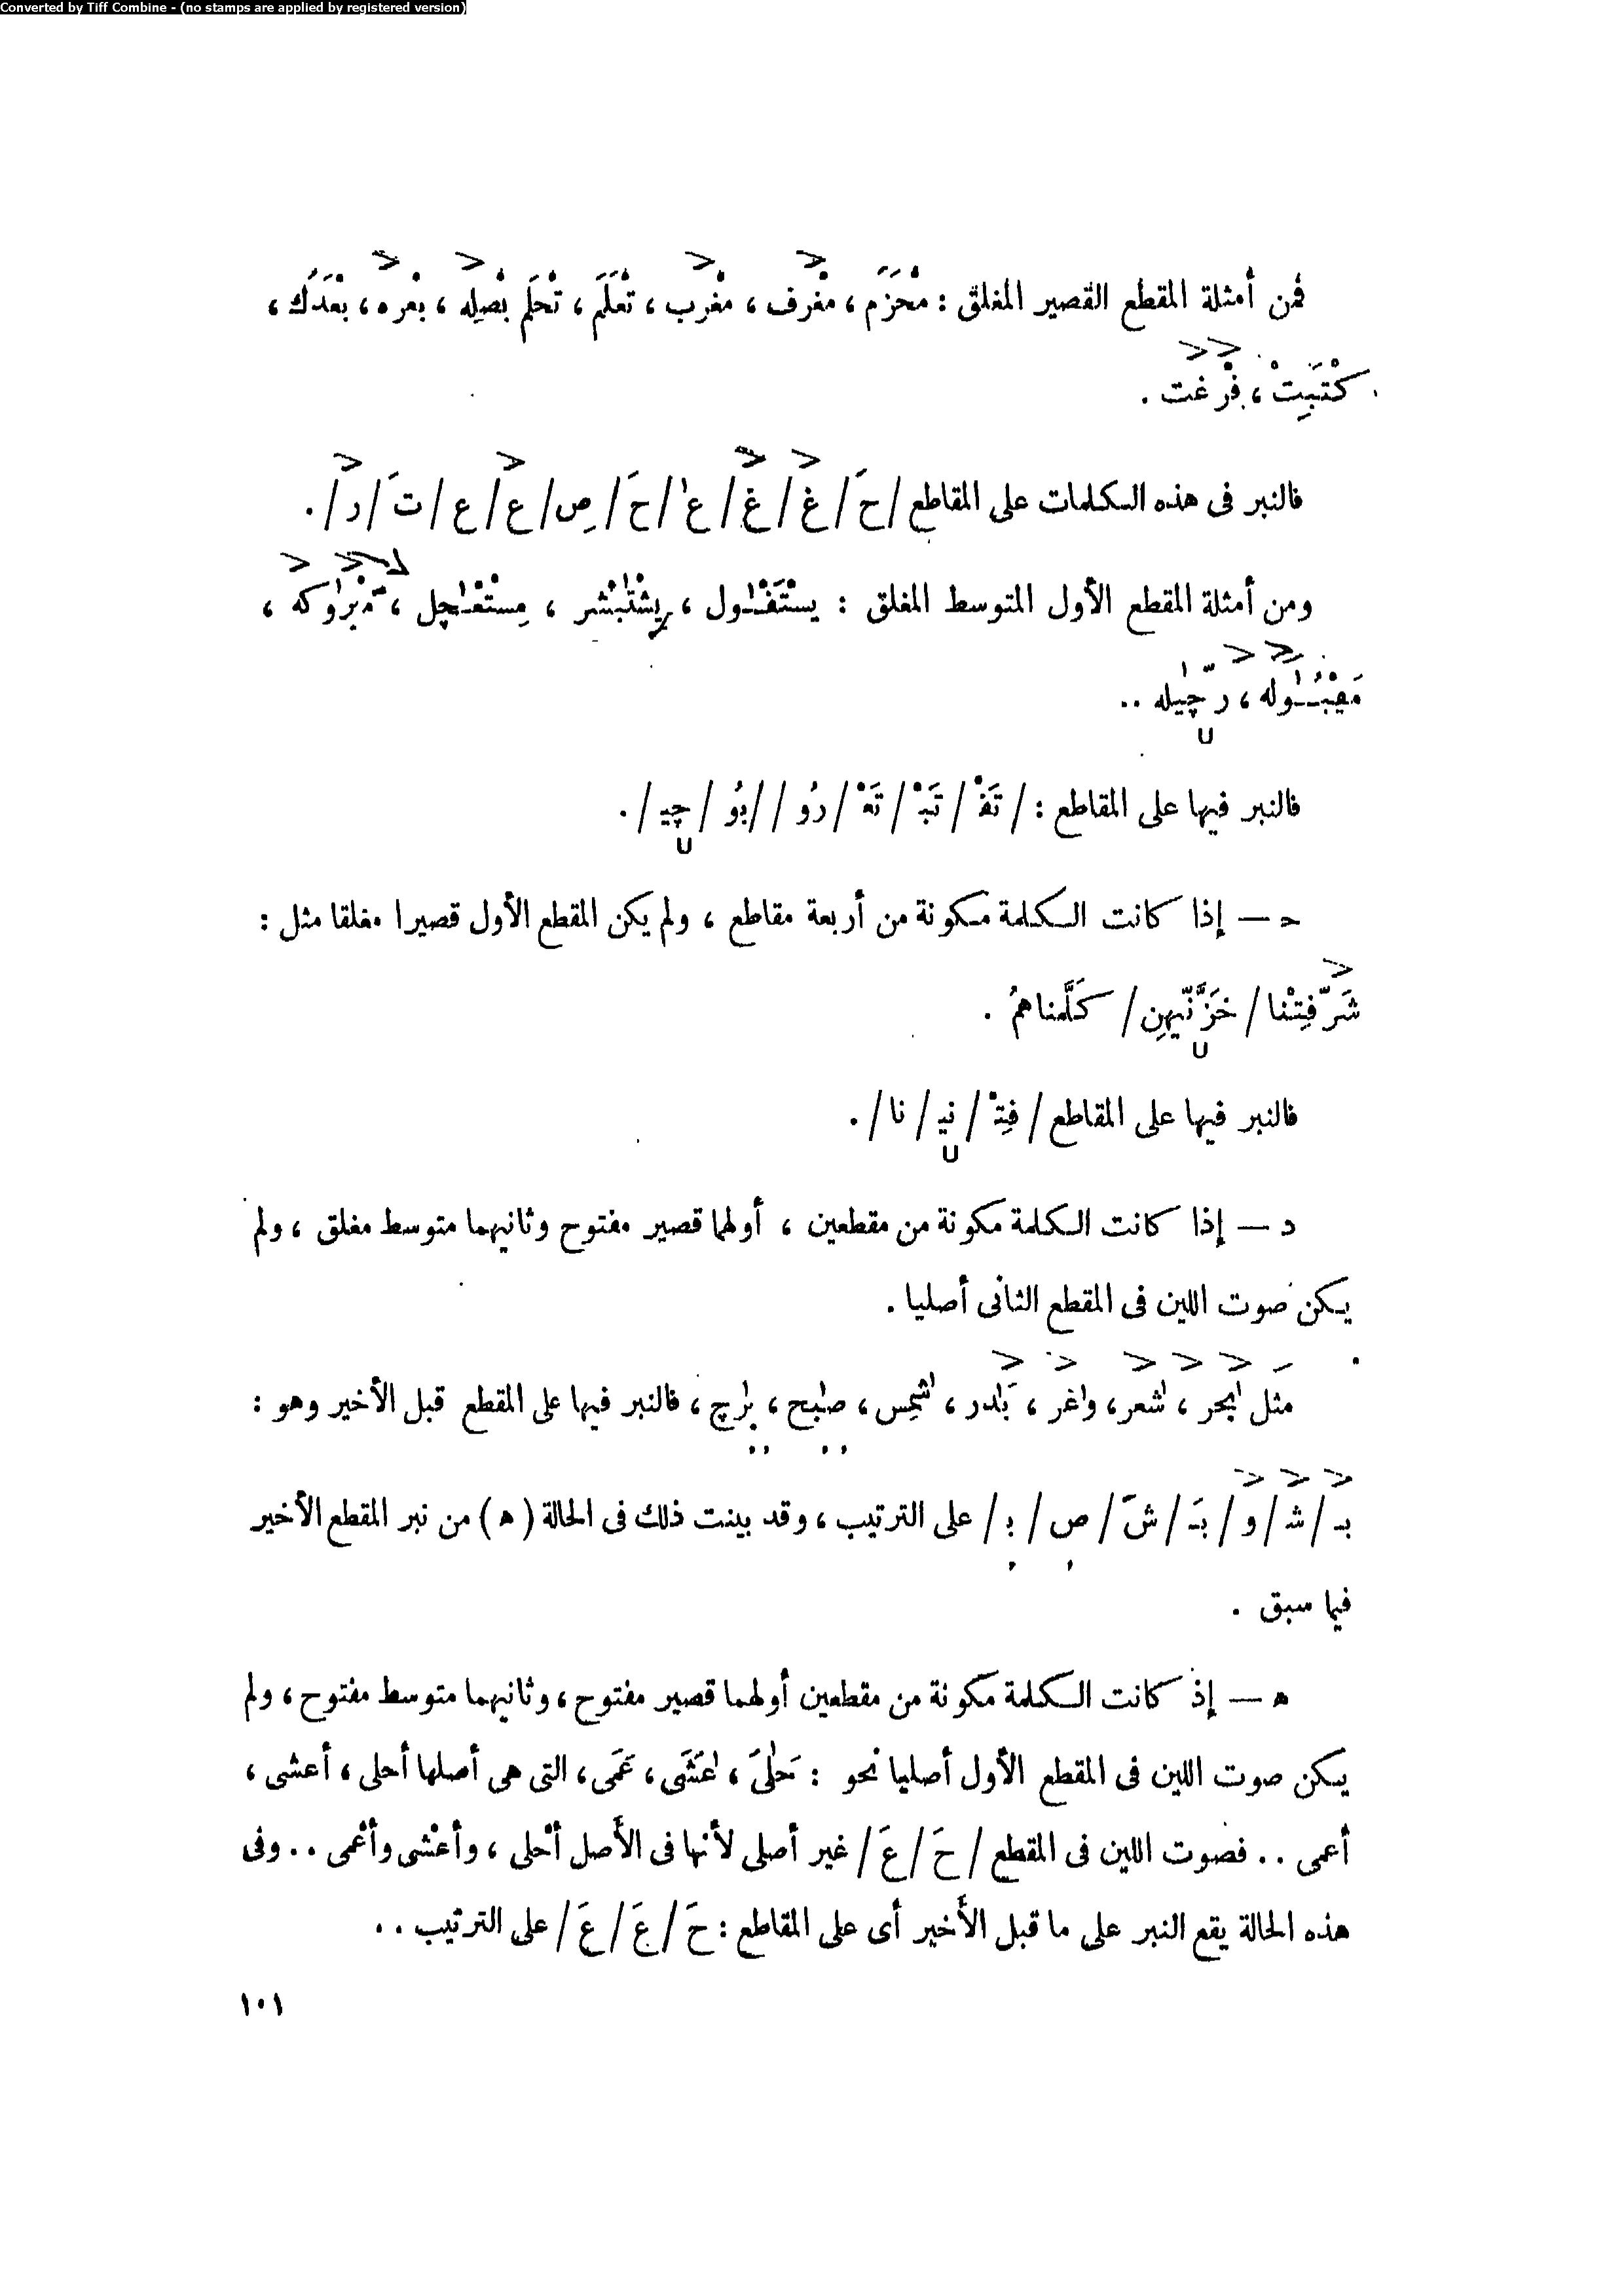 Converted by Tiff Combine - (no stamps are applied by registered version)
فمن أمثلة المقطع القصير المغلق : مْحَزَم ، مغْرف ، مغْرب ، تْعَلَمَ ، تْحَلَم بْصَلِه ، بعْره ، بْعَدَك ،
كْتَبِتْ ، فرْغت .
فالنبر فى هذه الكلمات على المقاطع / حَ / غ / غ / عَ / حَ / صِ / ع / ع / تَ / ر / .
ومن أمثلة المقطع الأول المتوسط المغلق : يستَفْـاول ، يشْتَبْشر ، مِستْعَـاچل ، مَبْرُوكه ،
مَقْبُـوله ، رچّيله . .
فالنبر فيها على المقاطع : / تَفْ / تَبْ / تَعْ / رُو / / بُو / چيـ / .
حـ — إذا كانت الكلمة مكونة من أربعة مقاطع ، ولم يكن المقطع الأول قصيرا مغلقا مثل :
شَرّفِتْنا / خَزَّنّيهِن / كَلَّمناهمُ .
فالنبر فيها على المقاطع / فِتْ / نيـ / نا / .
د — إذا كانت الكلمة مكونة من مقطعين ، أولهما قصير مفتوح وثانيهما متوسط مغلق ، ولم
يكن صوت اللين فى المقطع الثانى أصليا .
مثل بحر ، شعر ، واغر ، بَدر ، شمِس ، صبح ، برچ ، فالنبر فيها على المقطع قبل الأخير وهو :
بـ / شـ / و / بَـ / شَ / ص / بـ / على الترتيب ، وقد بينت ذلك فى الحالة ( ه ) من نبر المقطع الأخير
فيما سبق .
ه — إذ كانت الكلمة مكونة من مقطعين أولهما قصير مفتوح ، وثانيهما متوسط مفتوح ، ولم
يكن صوت اللين فى المقطع الأول أصليا نحو : حَلَى ، عَشَى ، عَمَى ، التى هى أصلها أحلى ، أعشى ،
أعمى . . فصوت اللين فى المقطع / حَ / عَ / غير أصلى لأنها فى الأصل أحْلى ، وأعْشى وأعْمى . . وفى
هذه الحالة يقع النبر على ما قبل الأخير أى على المقاطع : حَ / عَ / عَ / على الترتيب . .
١٠١